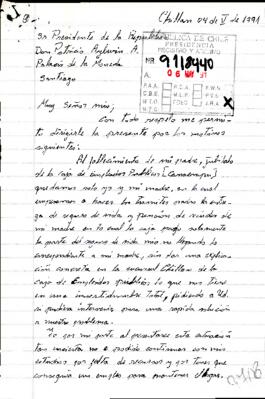 Chillán 04 de V de 1991
Sr Presidente de la República
Don Patricio Aylwin A.
Palacio de la Moneda
Santiago
REPUBLICA DE CHILE
PRESIDENCIA
REGISTRO Y ARCHIVO
NR 91/8440
A: 06 MAY 91
P.A.A. R.C.A. F.W.M.
C.B.E. M.L.P. P.V.S.
M.T.O. EDEC J.R.A.
M.Z.C.
Muy Señor mío;
Con todo respeto me permito
dirigirle la presente por los motivos
siguientes:
Al fallecimiento de mi padre, jubilado
de la Caja de Empleados Públicos (Canaempu)
quedamos solo yo y mi madre, en lo cual
empezamos a hacer los trámites para la entre-
ga de seguro de vida y pensión de viudez de
mi madre en lo cual la caja pagó solamente
la parte del seguro de vida mía no llegando lo
correspondiente a mi madre, sin dar una explica-
ción concreta en la sucursal Chillán de la
caja de Empleados públicos. Lo que nos tiene
en una incertidumbre total, pidiendo a Ud.
si pudiera interceder para una rápida solución
a nuestro problema.
por mi parte al presentarse esta situación
tan incierta no e podido continuar con mis
estudios por falta de recursos y por tener que
conseguir un empleo para mantener